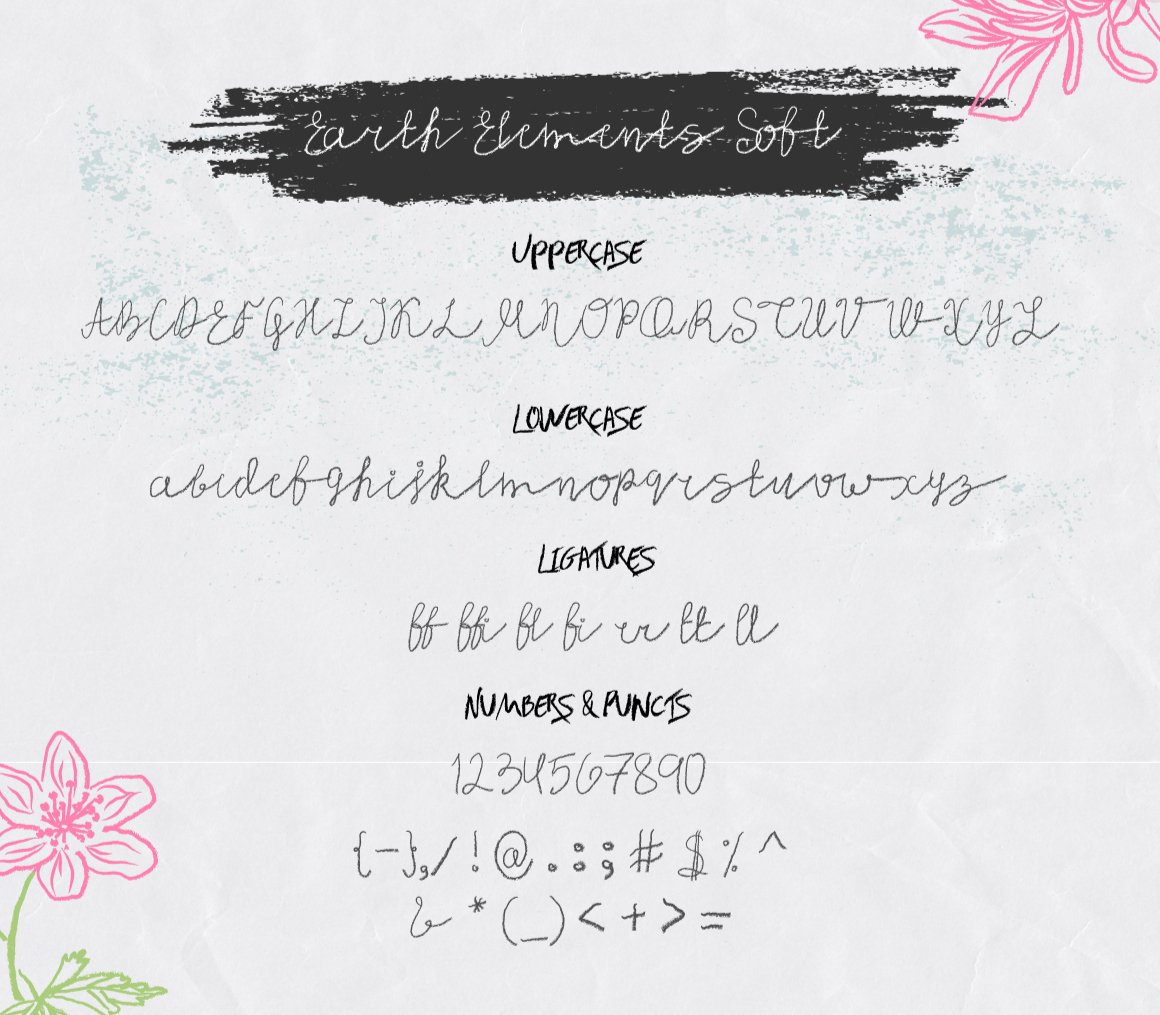 Earth Elements Soft
UPPERCASE
ABCDEFGHIJKLMNOPQRSTUVWXYZ
LOWERCASE
abcdefghijklmnopqrstuvwxyz
LIGATURES
ff ffi fl fi rr tt ll
NUMBERS & PUNCTS
1234567890
{-},/!@.:;#$%^
&*(_)<+>=